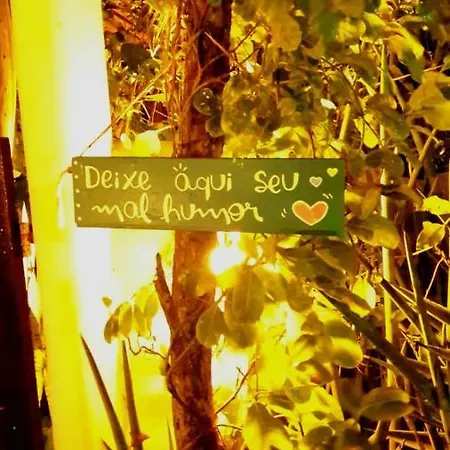 Deixe aqui seu
mal humor